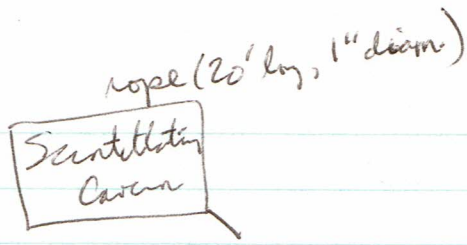 rope (20' long, 1" diam.)
Scintillating
Cavern